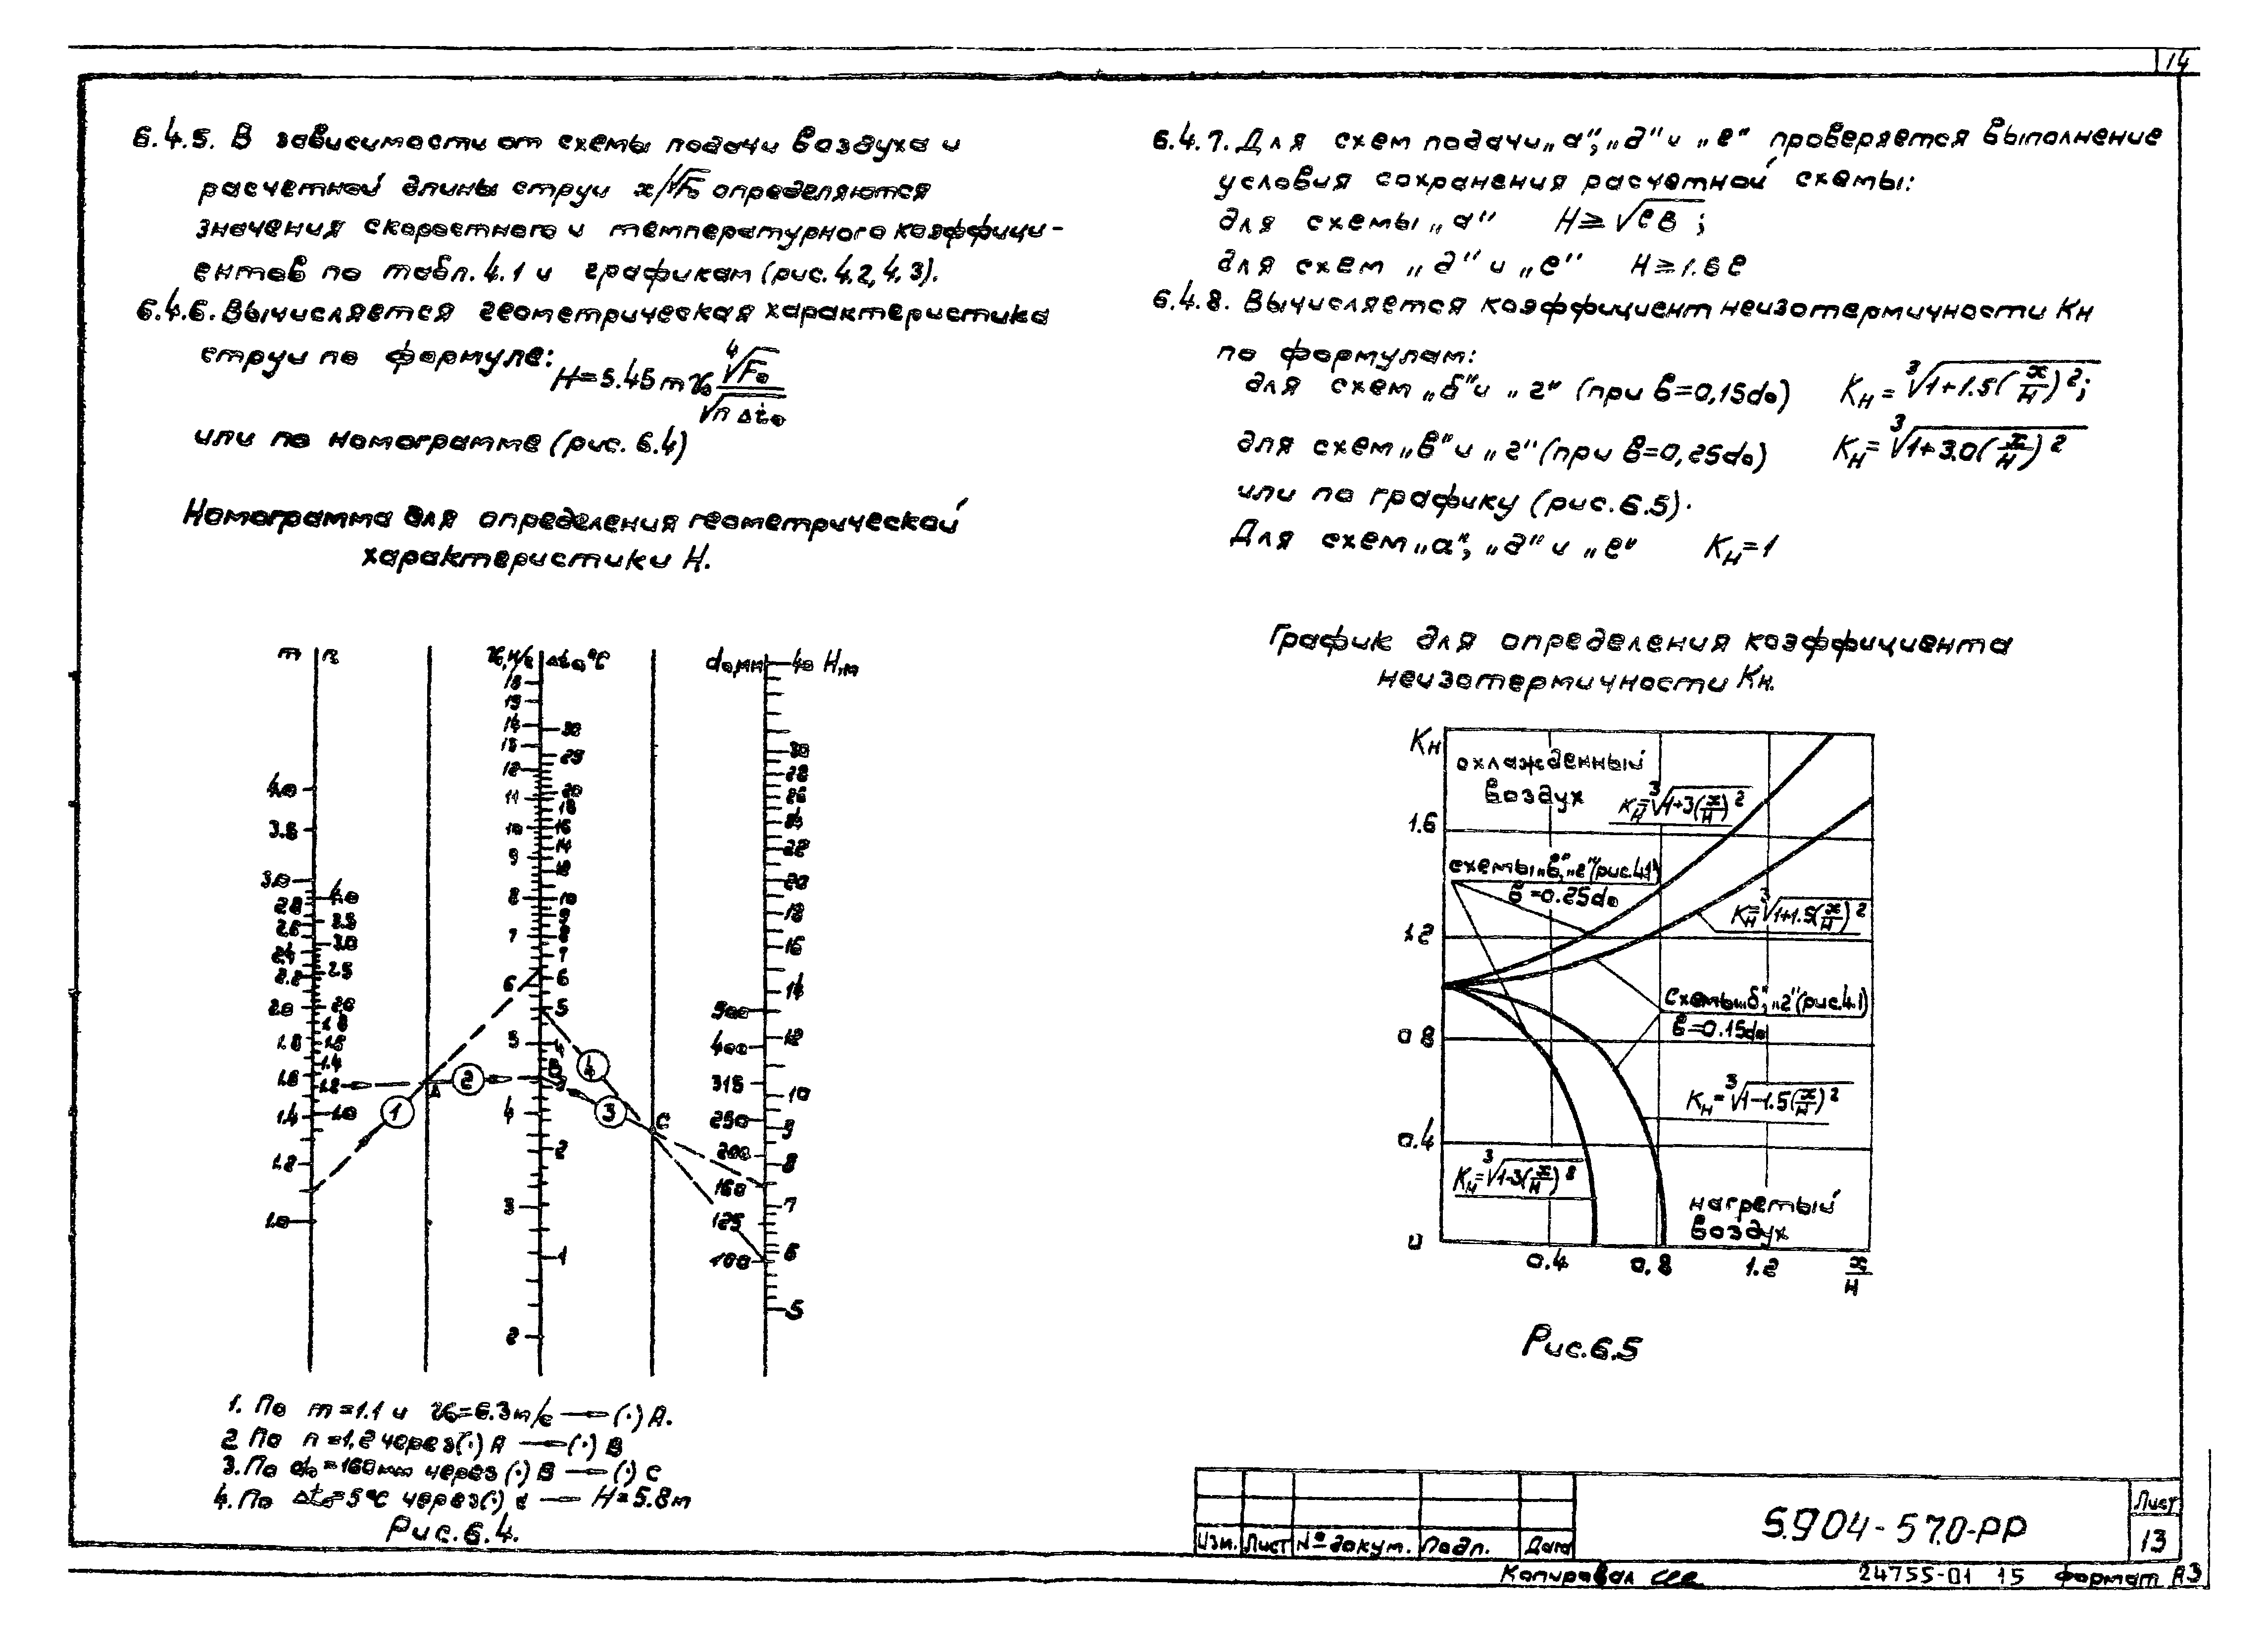 14
6.4.5. В зависимости от схемы подачи воздуха и
расчетной длины струи x/√F₀ определяются
значения скоростного и температурного коэффици-
ентов по табл. 4.1 и графикам (рис. 4.2, 4.3).
6.4.6. Вычисляется геометрическая характеристика
струи по формуле: H=5.45 m v₀ ⁴√F₀ / √(n Δt₀)
или по номограмме (рис. 6.4)
Номограмма для определения геометрической
характеристики H.
m n v₀, м/с Δt₀ °C d₀, мм H, м
4.0
3.0
2.8
2.6
2.4
2.2
2.0
1.8
1.6
1.4
1.2
1.0
4.0
3.5
3.0
2.5
2.0
1.8
1.4
1.2
1.0
12
11
10
9
8
7
6
5
4
3
2
30
20
18
16
14
10
9
8
7
6
5
4
3
2
1
500
400
315
250
200
160
125
100
40
30
28
26
24
22
20
18
16
14
12
10
9
8
7
6
5
1
2
3
4
A
B
C
1. По m=1.1 и v₀=6.3 м/с → (·) A.
2. По n=1,2 через (·) A → (·) B
3. По d₀=160мм через (·) B → (·) C
4. По Δt₀=5°C через (·) c — H=5.8 м
Рис. 6.4.
6.4.7. Для схем подачи „а“, „д“ и „е“ проверяется выполнение
условия сохранения расчетной схемы:
для схемы „а“ H≥√eв;
для схем „д“ и „е“ H≥1.6e
6.4.8. Вычисляется коэффициент неизотермичности Kн
по формулам:
для схем „б“ и „г“ (при в=0,15d₀) Kн=³√1+1.5(x/H)²;
для схем „в“ и „г“ (при в=0,25d₀) Kн=³√1+3.0(x/H)²
или по графику (рис. 6.5).
Для схем „а“, „д“ и „е“ Kн=1
График для определения коэффициента
неизотермичности Kн.
Kн
охлажденный
воздух
Kн=³√1+3(x/H)²
1.6
схемы „в“, „г“ (рис. 4.1)
в=0.25d₀
Kн=³√1+1.5(x/H)²
1.2
Схемы „б“, „г“ (рис. 4.1)
в=0.15d₀
0.8
Kн=³√1-1.5(x/H)²
0.4
Kн=³√1-3(x/H)²
нагретый
воздух
0
0.4 0.8 1.2 x/H
Рис. 6.5
Изм. Лист № докум. Подп. Дата
5.904-57.0-РР
Лист
13
Копировал
24755-01 15 формат А3